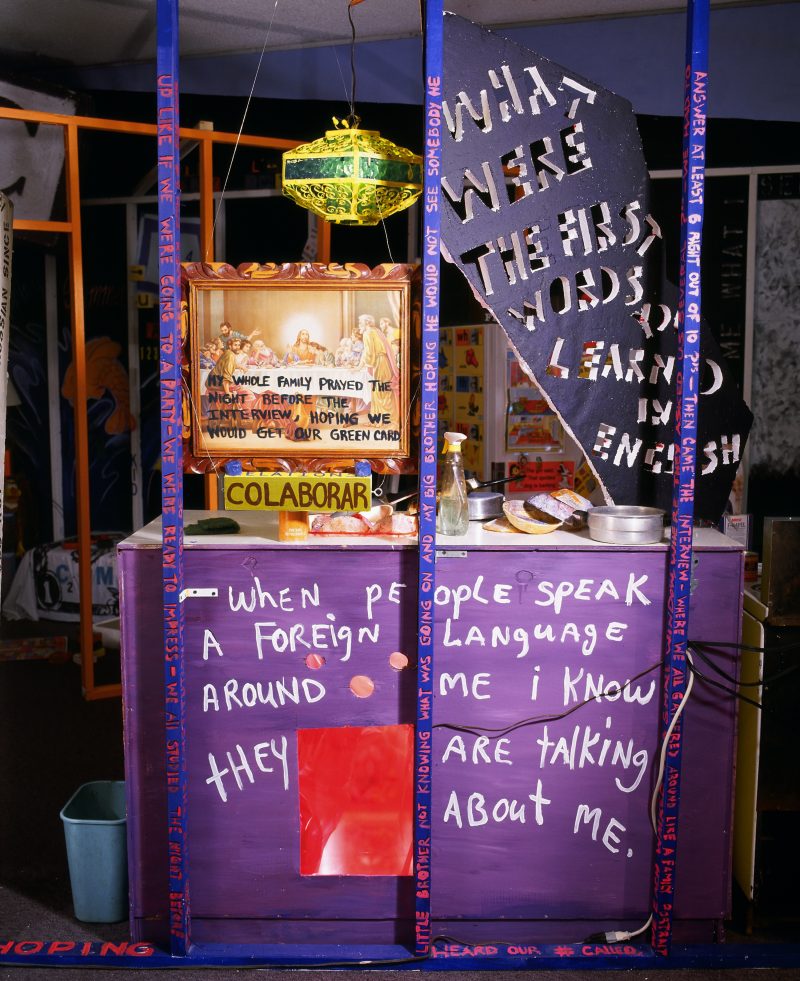 WHAT
WERE
THE FIRST
WORDS
YOU
LEARNED
IN
ENGLISH
MY WHOLE FAMILY PRAYED THE
NIGHT BEFORE THE
INTERVIEW, HOPING WE
WOULD GET OUR GREEN CARD
COLABORAR
WHEN PEOPLE SPEAK
A FOREIGN LANGUAGE
AROUND ME I KNOW
THEY ARE TALKING
ABOUT ME.
UP LIKE IF WE WERE GOING TO A PARTY - WE WERE READY TO IMPRESS - WE ALL STUDIED THE NIGHT BEFORE
LITTLE BROTHER NOT KNOWING WHAT WAS GOING ON AND MY BIG BROTHER HOPING HE WOULD NOT SEE SOMEBODY HE
ANSWER AT LEAST 6 RIGHT OUT OF 10 ?'s - THEN CAME THE INTERVIEW - WHERE WE ALL GATHERED AROUND LIKE A FAMILY PORTRAIT
HOPING
HEARD OUR # CALLED
ME WHAT I
SINCE